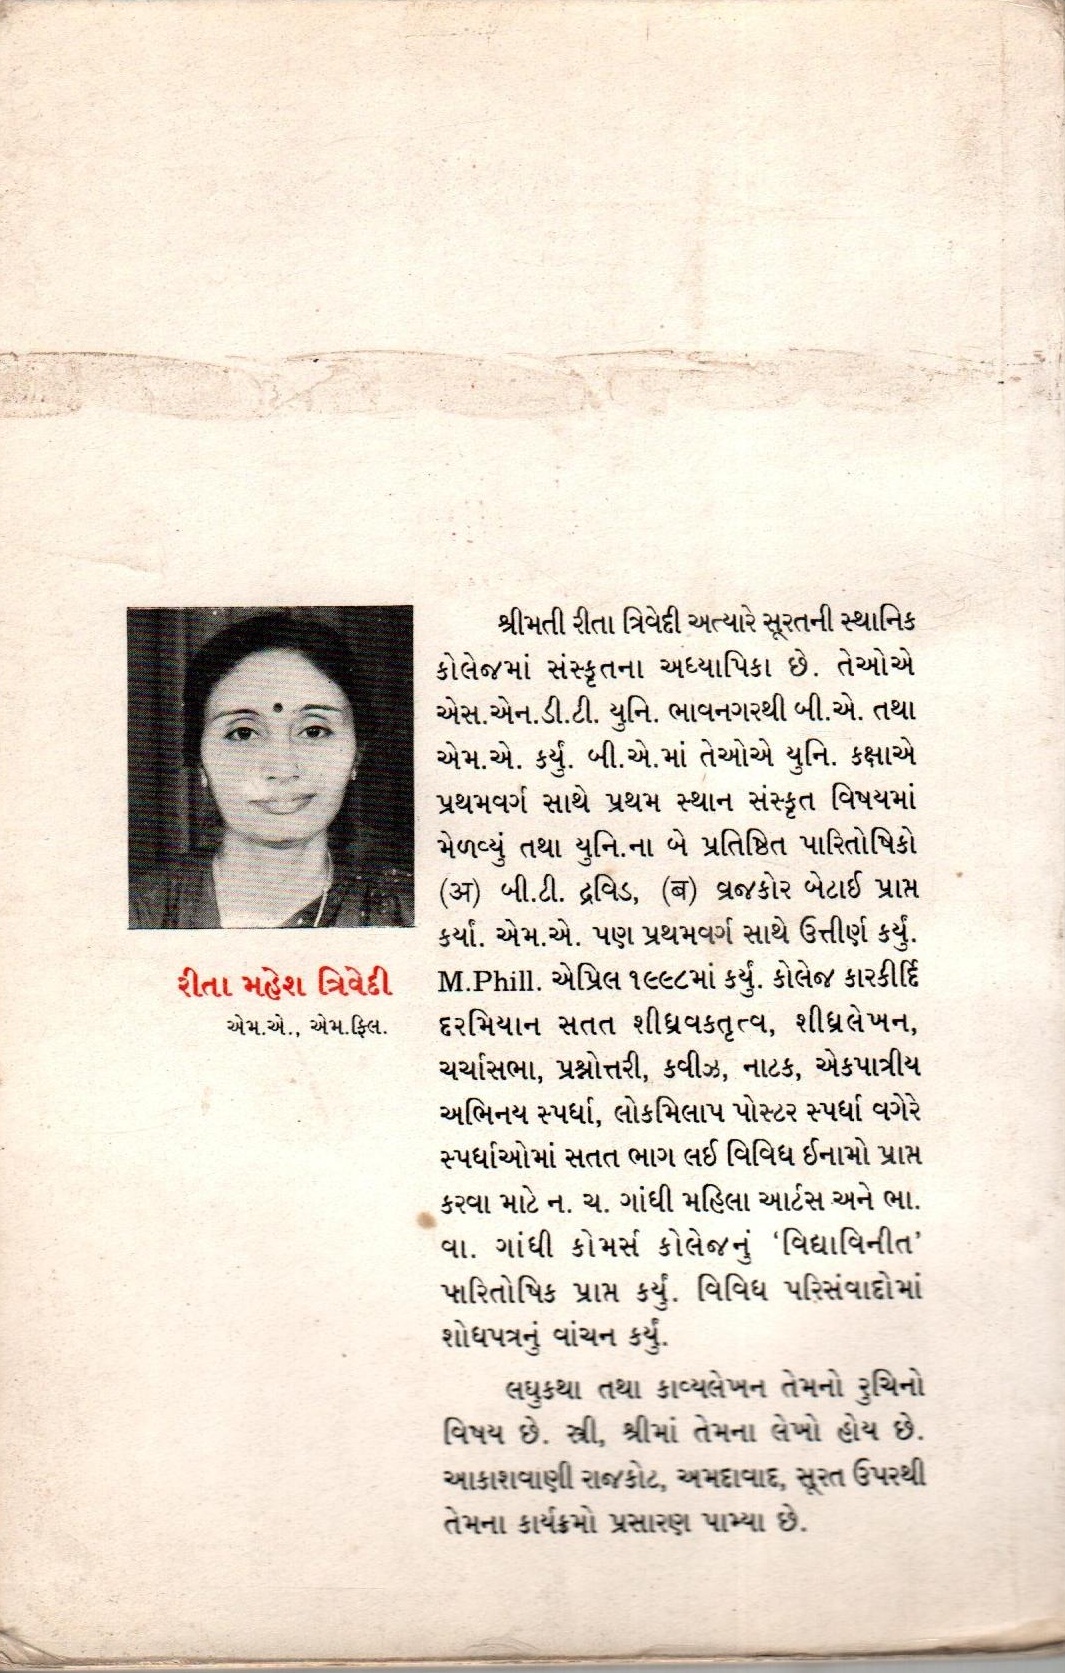 રીતા મહેશ ત્રિવેદી
એમ.એ., એમ.ફિલ.
શ્રીમતી રીતા ત્રિવેદી અત્યારે સૂરતની સ્થાનિક
કોલેજમાં સંસ્કૃતના અધ્યાપિકા છે. તેઓએ
એસ.એન.ડી.ટી. યુનિ. ભાવનગરથી બી.એ. તથા
એમ.એ. કર્યું. બી.એ.માં તેઓએ યુનિ. કક્ષાએ
પ્રથમવર્ગ સાથે પ્રથમ સ્થાન સંસ્કૃત વિષયમાં
મેળવ્યું તથા યુનિ.ના બે પ્રતિષ્ઠિત પારિતોષિકો
(अ) બી.ટી. દ્રવિડ, (ब) વ્રજકોર બેટાઈ પ્રાપ્ત
કર્યાં. એમ.એ. પણ પ્રથમવર્ગ સાથે ઉત્તીર્ણ કર્યું.
M.Phill. એપ્રિલ ૧૯૯૮માં કર્યું. કોલેજ કારકીર્દિ
દરમિયાન સતત શીઘ્રવકતૃત્વ, શીઘ્રલેખન,
ચર્ચાસભા, પ્રશ્નોત્તરી, કવીઝ, નાટક, એકપાત્રીય
અભિનય સ્પર્ધા, લોકમિલાપ પોસ્ટર સ્પર્ધા વગેરે
સ્પર્ધાઓમાં સતત ભાગ લઈ વિવિધ ઈનામો પ્રાપ્ત
કરવા માટે ન. ચ. ગાંધી મહિલા આર્ટસ અને ભા.
વા. ગાંધી કોમર્સ કોલેજનું ‘વિદ્યાવિનીત’
પારિતોષિક પ્રાપ્ત કર્યું. વિવિધ પરિસંવાદોમાં
શોધપત્રનું વાંચન કર્યું.
લઘુકથા તથા કાવ્યલેખન તેમનો રુચિનો
વિષય છે. સ્ત્રી, શ્રીમાં તેમના લેખો હોય છે.
આકાશવાણી રાજકોટ, અમદાવાદ, સૂરત ઉપરથી
તેમના કાર્યક્રમો પ્રસારણ પામ્યા છે.